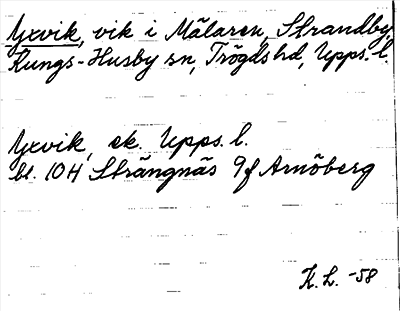 Yxvik, vik i Mälaren, Strandby,
Kungs-Husby sn, Trögds hd, Upps. l.
Yxvik, ek. Upps. l.
bl. 10H Strängnäs 9f Arnöberg
K. L. -58